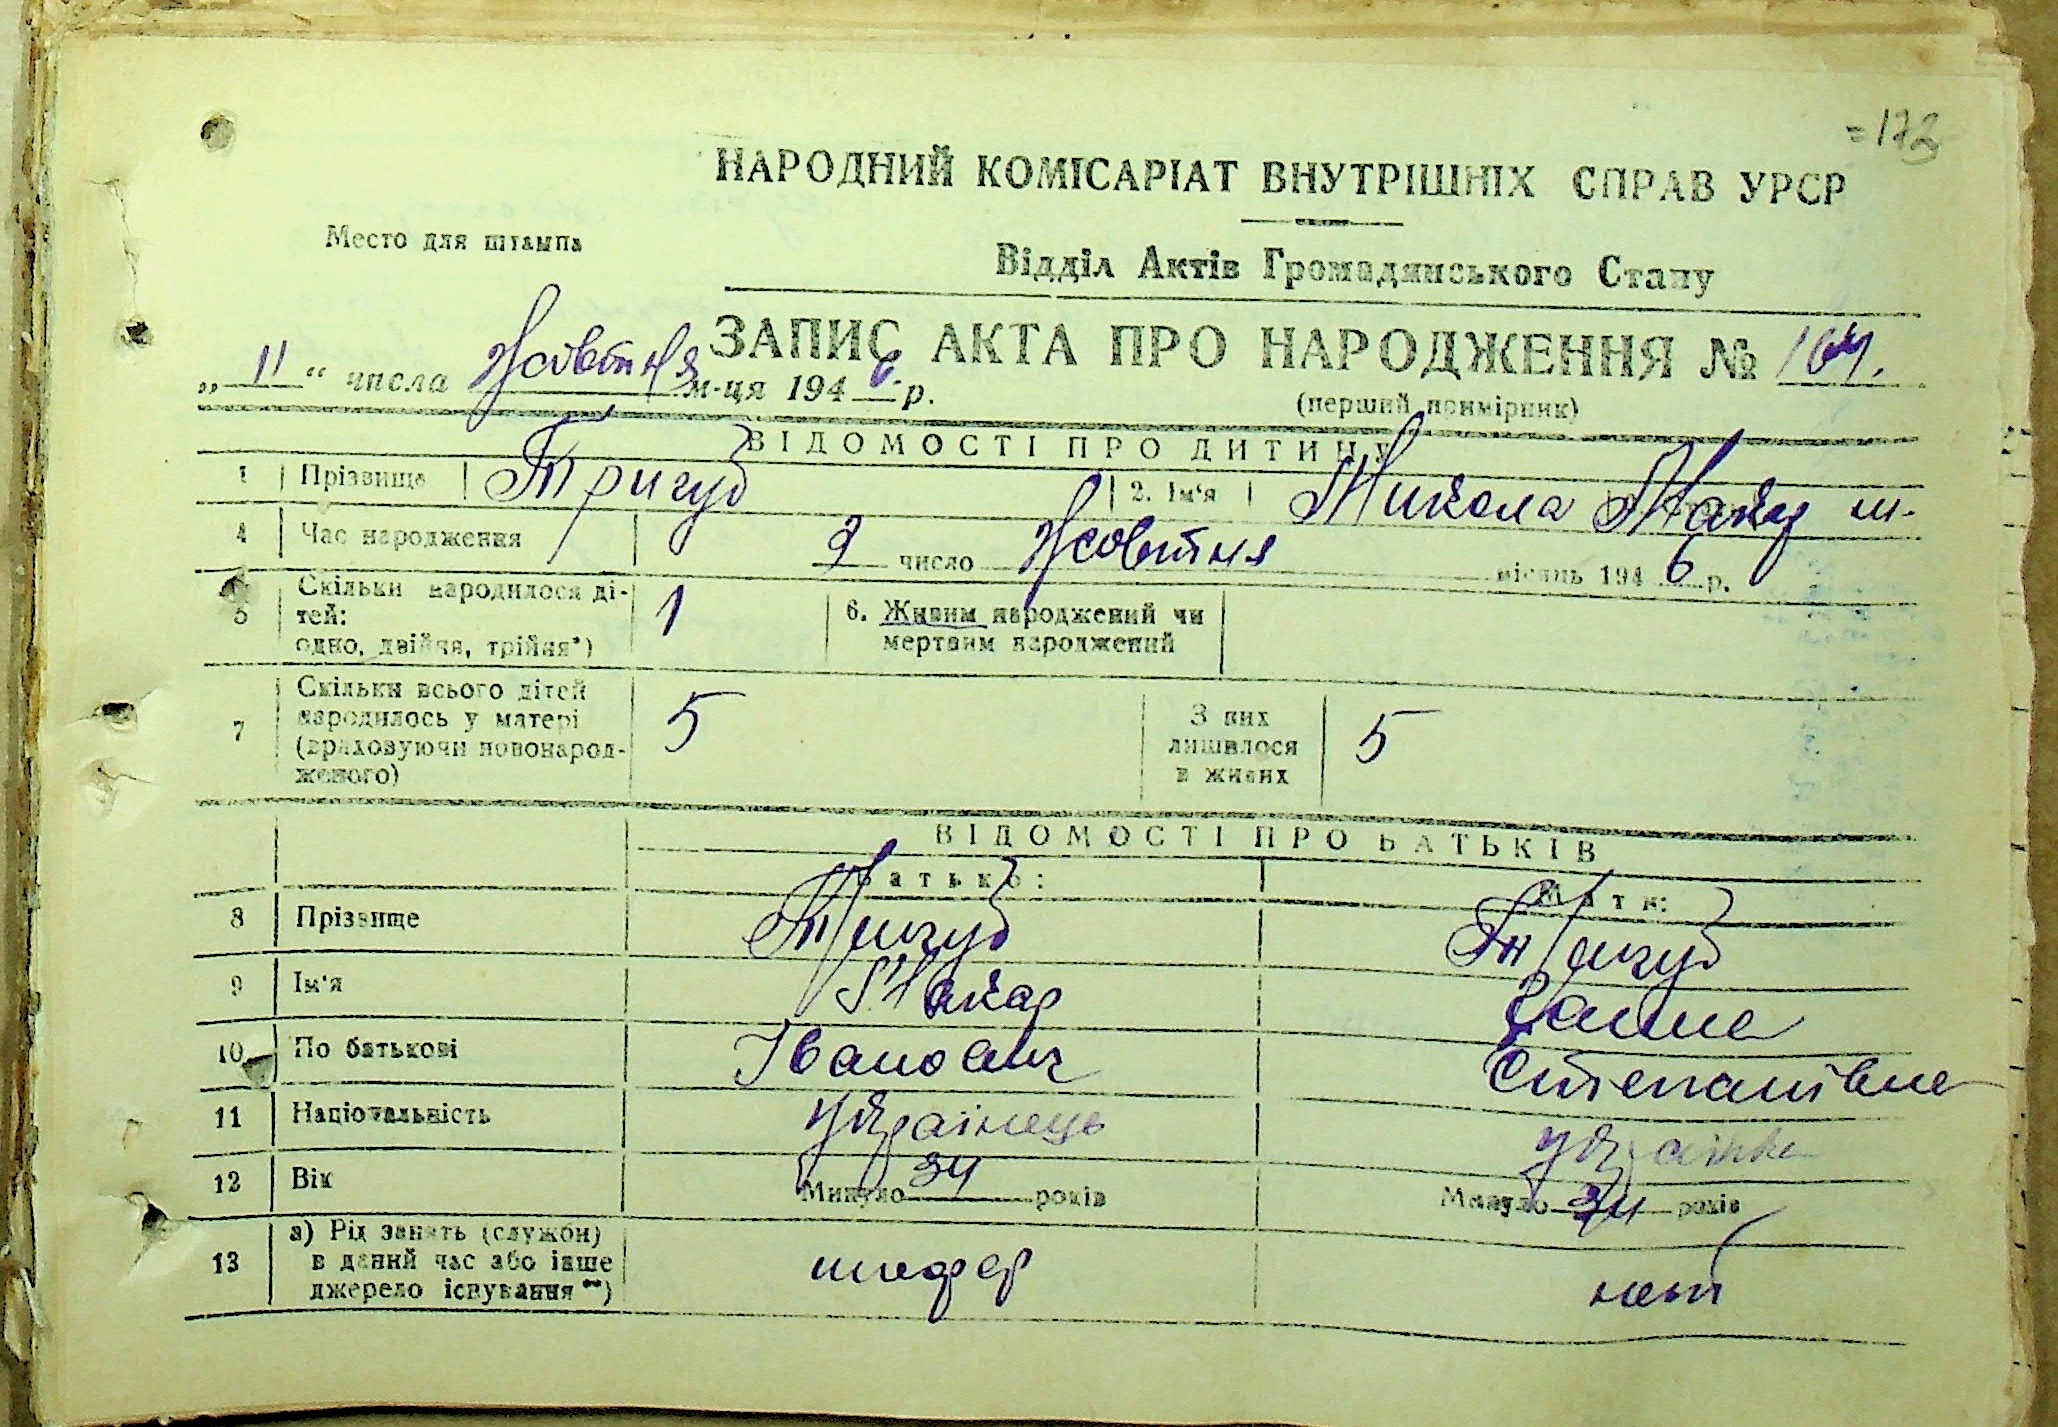 =173
НАРОДНИЙ КОМІСАРІАТ ВНУТРІШНІХ СПРАВ УРСР
Место для штампа
Відділ Актів Громадянського Стану
ЗАПИС АКТА ПРО НАРОДЖЕННЯ № 164.
„ 11 “ числа Жовтня м-ця 194 6 р.
(перший примірник)
ВІДОМОСТІ ПРО ДИТИНУ
1 Прізвище Тригуб 2. Ім‘я Микола Макар
4 Час народження 9 число Жовтня місяць 194 6 р.
5 Скільки народилося ді-
тей:
одно, двійня, трійня*)
1
6. Живим народжений чи
мертвим народжений
7 Скільки всього дітей
народилось у матері
(враховуючи новонарод-
женого)
5
З них
лишилося
в живих
5
ВІДОМОСТІ ПРО БАТЬКІВ
Батько: Мати:
8 Прізвище Тригуб Тригуб
9 Ім‘я Макар Ганна
10 По батькові Іванович Степанівна
11 Національність українець українка
12 Вік Минуло 34 років Минуло 34 років
13 а) Рід занять (служби)
в даний час або інше
джерело існування **)
шофер нет